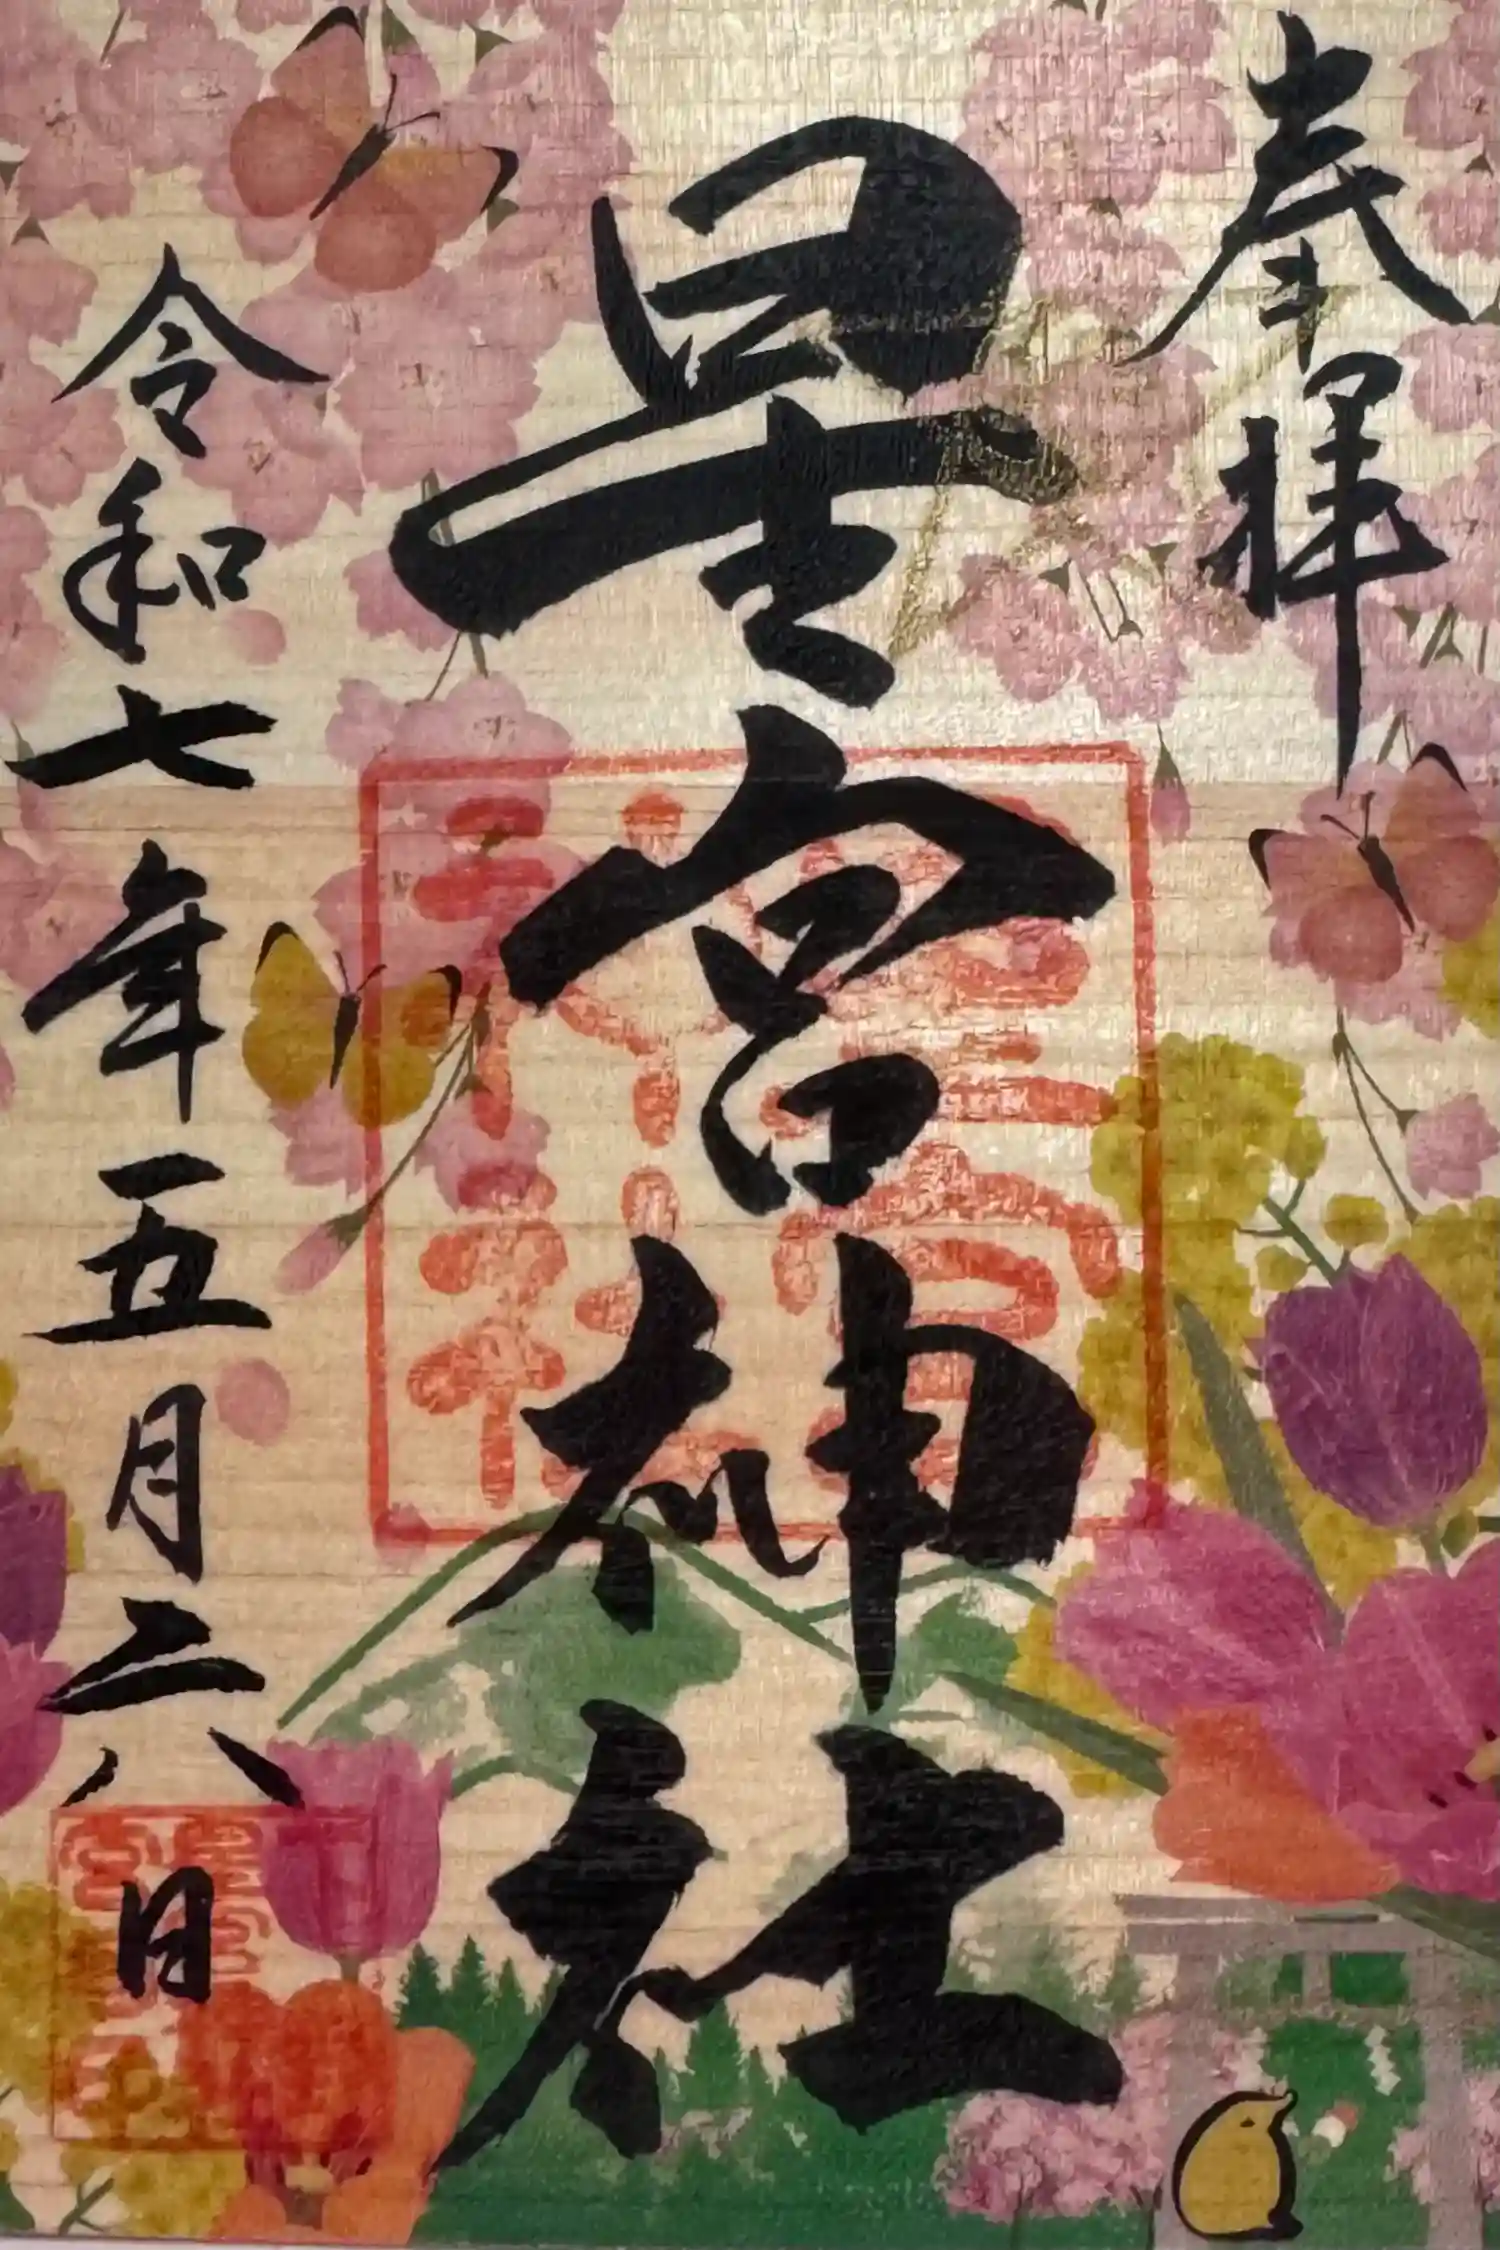 奉拝
星宮神社
令和七年五月二八日